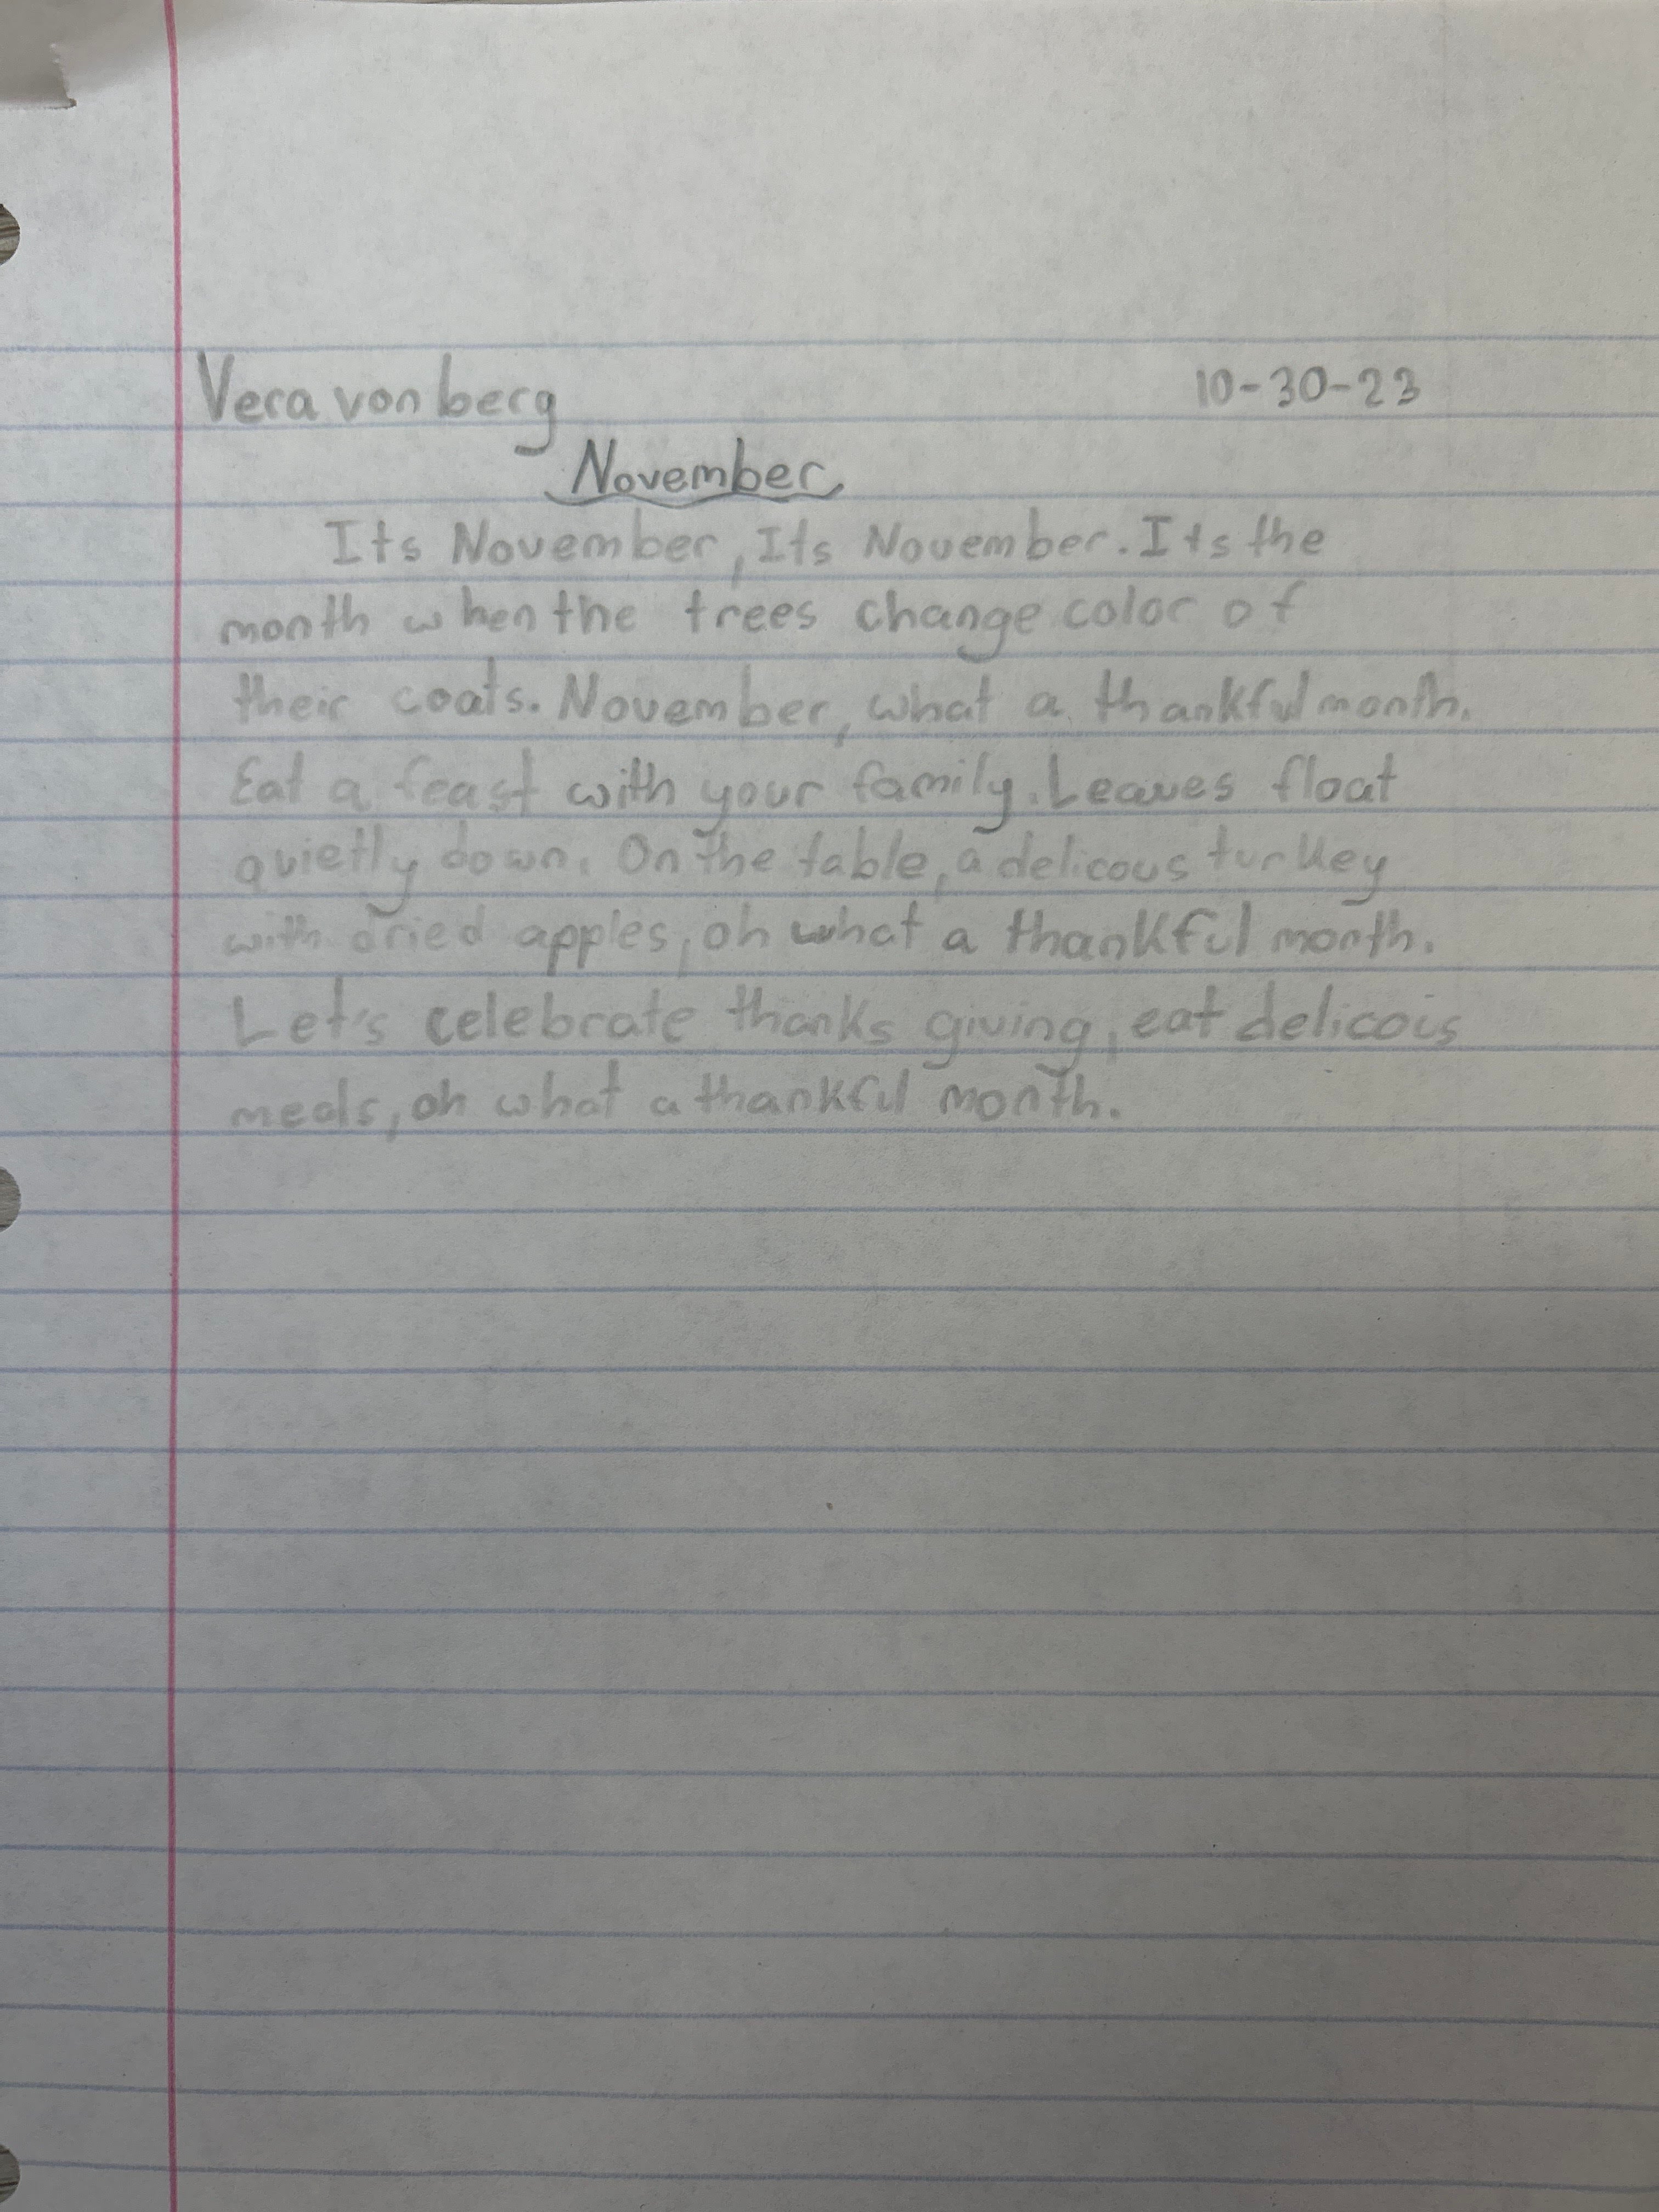 Vera von berg 10-30-23
November
Its November, Its November. Its the
month when the trees change color of
their coats. November, what a thankful month.
Eat a feast with your family. Leaves float
quietly down. On the table, a delicous turkey
with dried apples, oh what a thankful month.
Let's celebrate thanks giving, eat delicois
meals, oh what a thankful month.